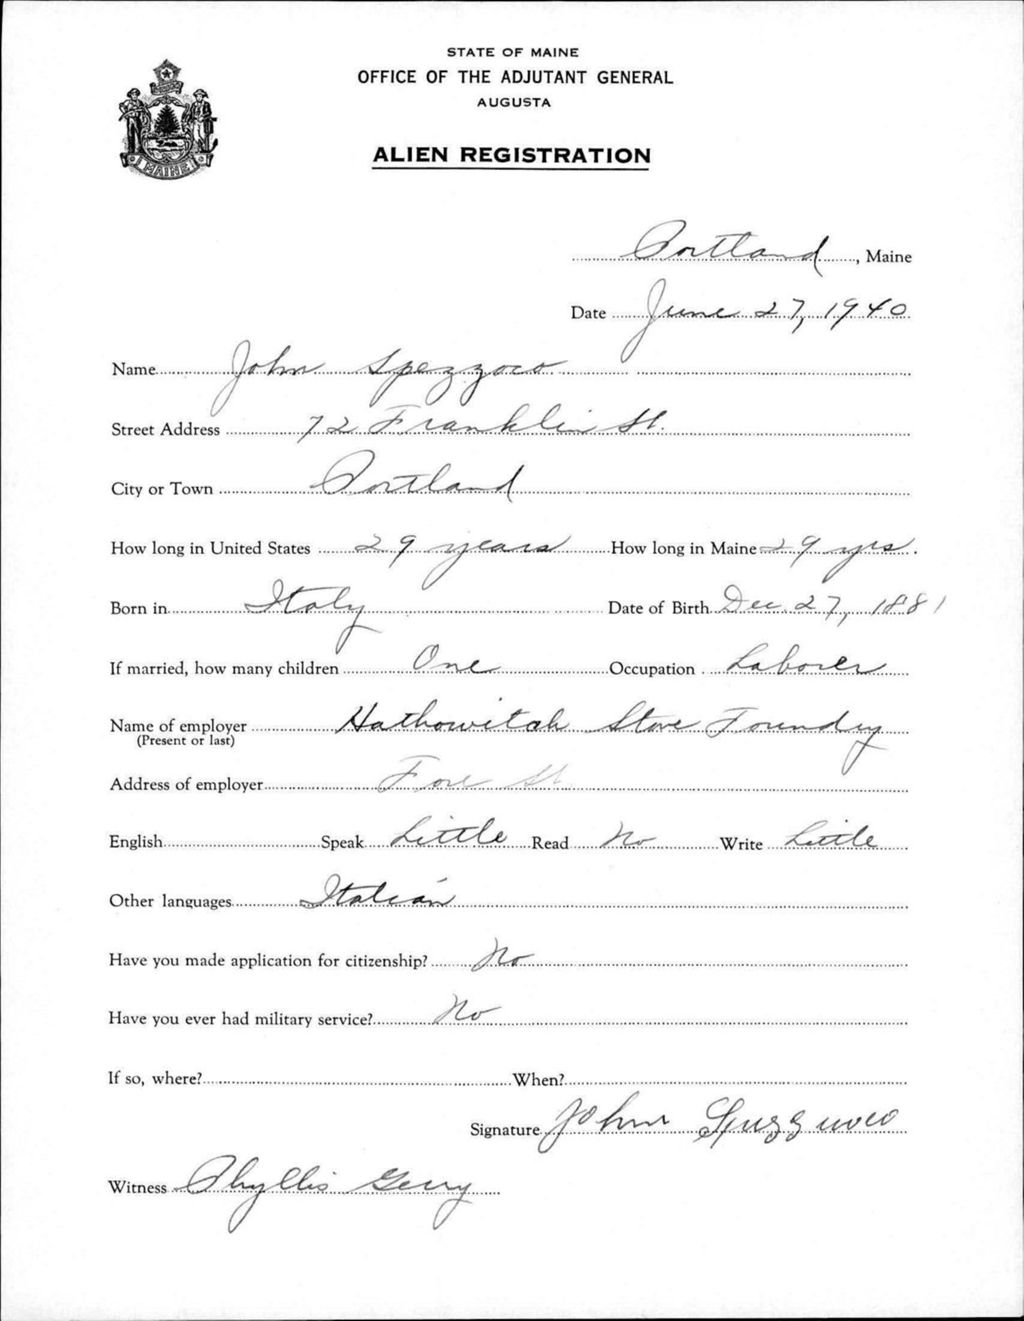 STATE OF MAINE
OFFICE OF THE ADJUTANT GENERAL
AUGUSTA
ALIEN REGISTRATION
MAINE
Portland, Maine
Date June 27, 1940
Name John Spezzoco
Street Address 72 Franklin St.
City or Town Portland
How long in United States 29 years How long in Maine 29 yrs.
Born in Italy Date of Birth Dec. 27, 1881
If married, how many children One Occupation Laborer
Name of employer Hathowitah Stove Foundry
(Present or last)
Address of employer Fore St.
English Speak Little Read No Write Little
Other languages Italian
Have you made application for citizenship? No
Have you ever had military service? No
If so, where? When?
Signature John
Witness Phyllis Gerry